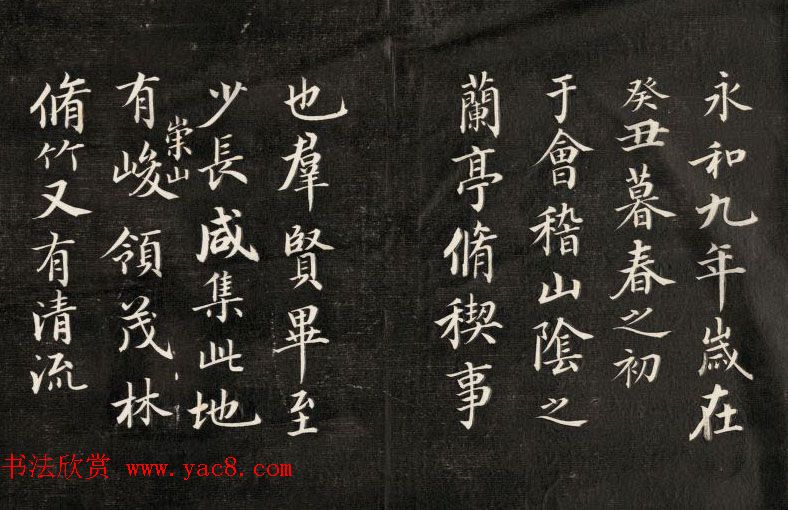 永和九年歲在
癸丑暮春之初
于會稽山陰之
蘭亭脩稧事
也羣賢畢至
少長咸集此地
崇山
有峻領茂林
脩竹又有清流
书法欣赏 www.yac8.com